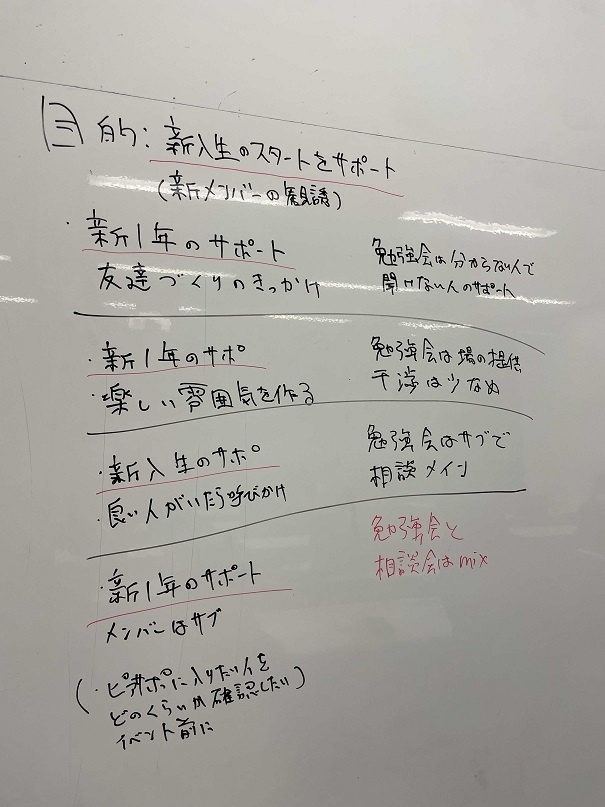 目的: 新入生のスタートをサポート
(新メンバーの勧誘)
・新1年のサポート
友達づくりのきっかけ
勉強会は分からない人で
聞けない人のサポート
・新1年のサポ
・楽しい雰囲気を作る
勉強会は場の提供
干渉は少なめ
・新入生のサポ
・良い人がいたら呼びかけ
勉強会はサブで
相談メイン
勉強会と
相談会はmix
・新1年のサポート
メンバーはサブ
(・ピアサポに入りたい人を
どのくらいか確認したい)
イベント前に